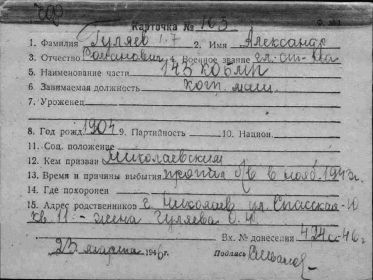 Карточка № 163
1. Фамилия Гуляев 2. Имя Александр
3. Отчество Романович 4. Военное звание гл. ст-на
5. Наименование части 143 КОБМП
6. Занимаемая должность
7. Уроженец
8. Год рожд. 1904 9. Партийность 10. Национ.
11. Соц. положение
12. Кем призван Николаевским
13. Время и причины выбытия пропал б/в в нояб. 1943г.
14. Где похоронен
15. Адрес родственников г. Николаев ул. Спасская-10
кв. 11 - жена Гуляева О.
23 марта 1946 г. Вх. № донесения 46г.
Подпись